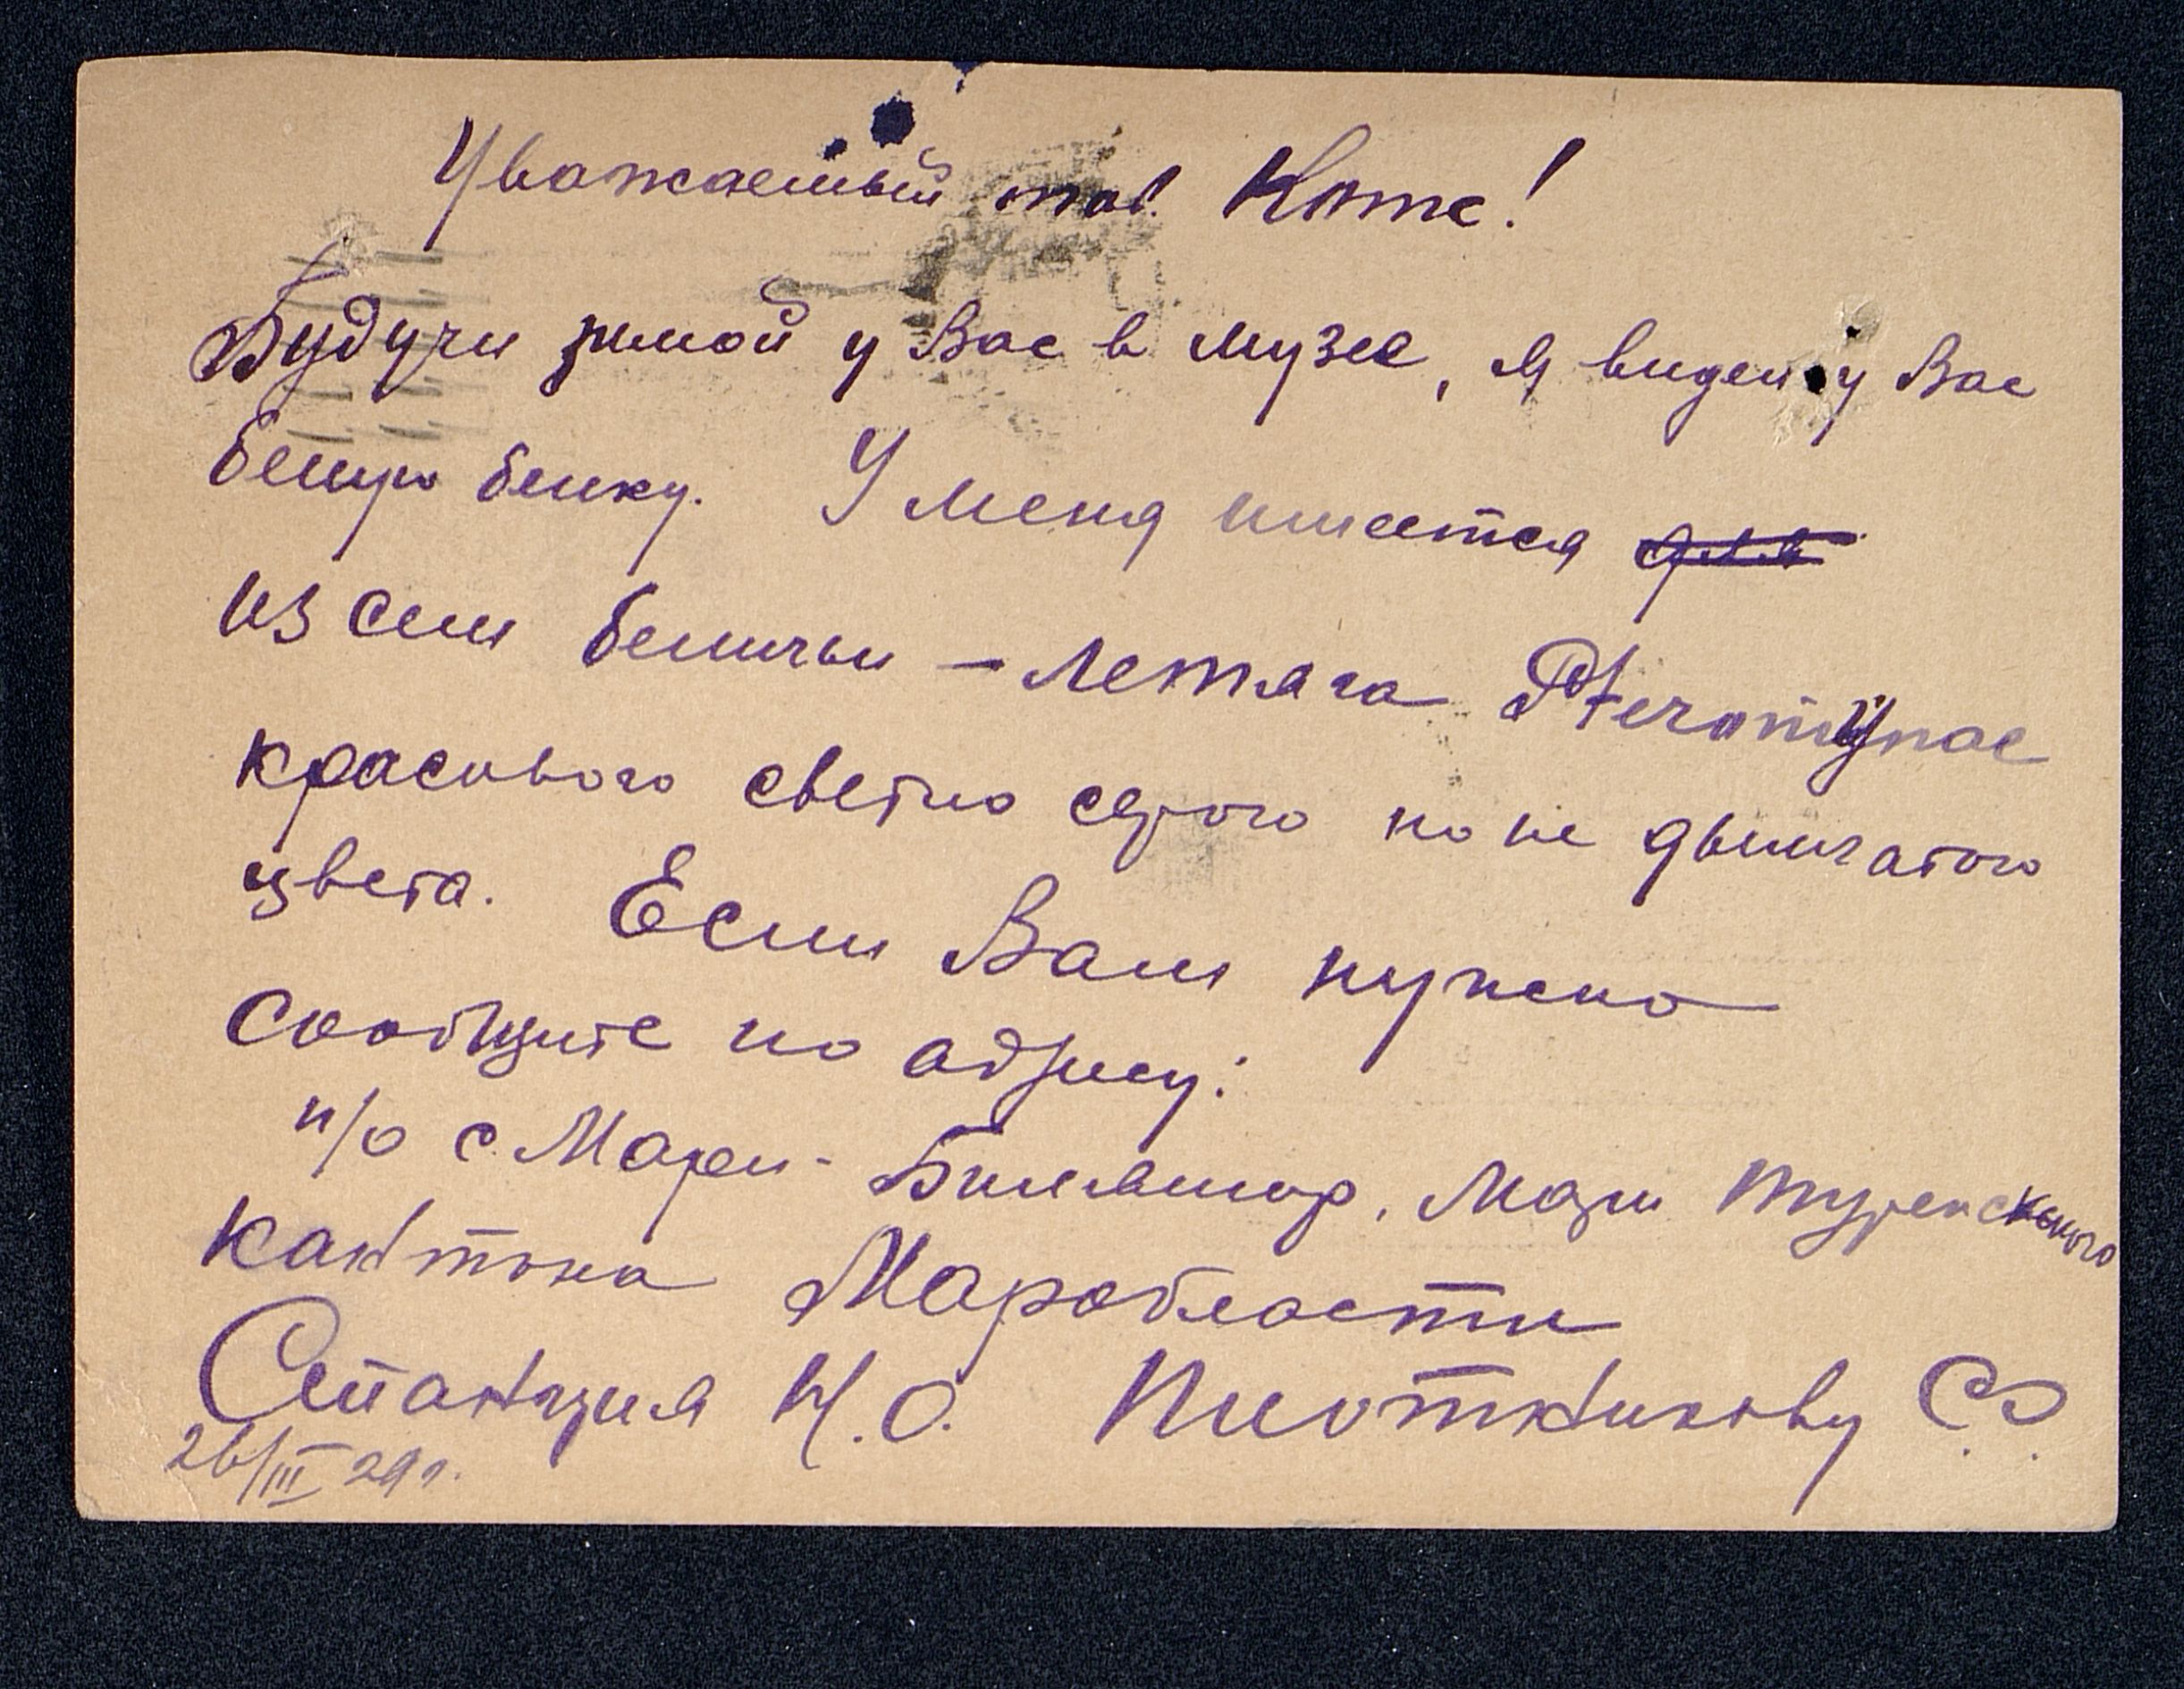 Уважаемый тов. Котс!
Будучи зимой у Вас в музее, я видел у Вас
белую белку. У меня имеется
из сем беличьи – летяга Pteromynae
красивого светло серого но не дымчатого
цвета. Если Вам нужно
сообщите по адресу:
п/о с. Мари-Билямор, Мари Турекского
кантона Маробласти
Станция Н.О. Плотникову С.
26/III 29г.